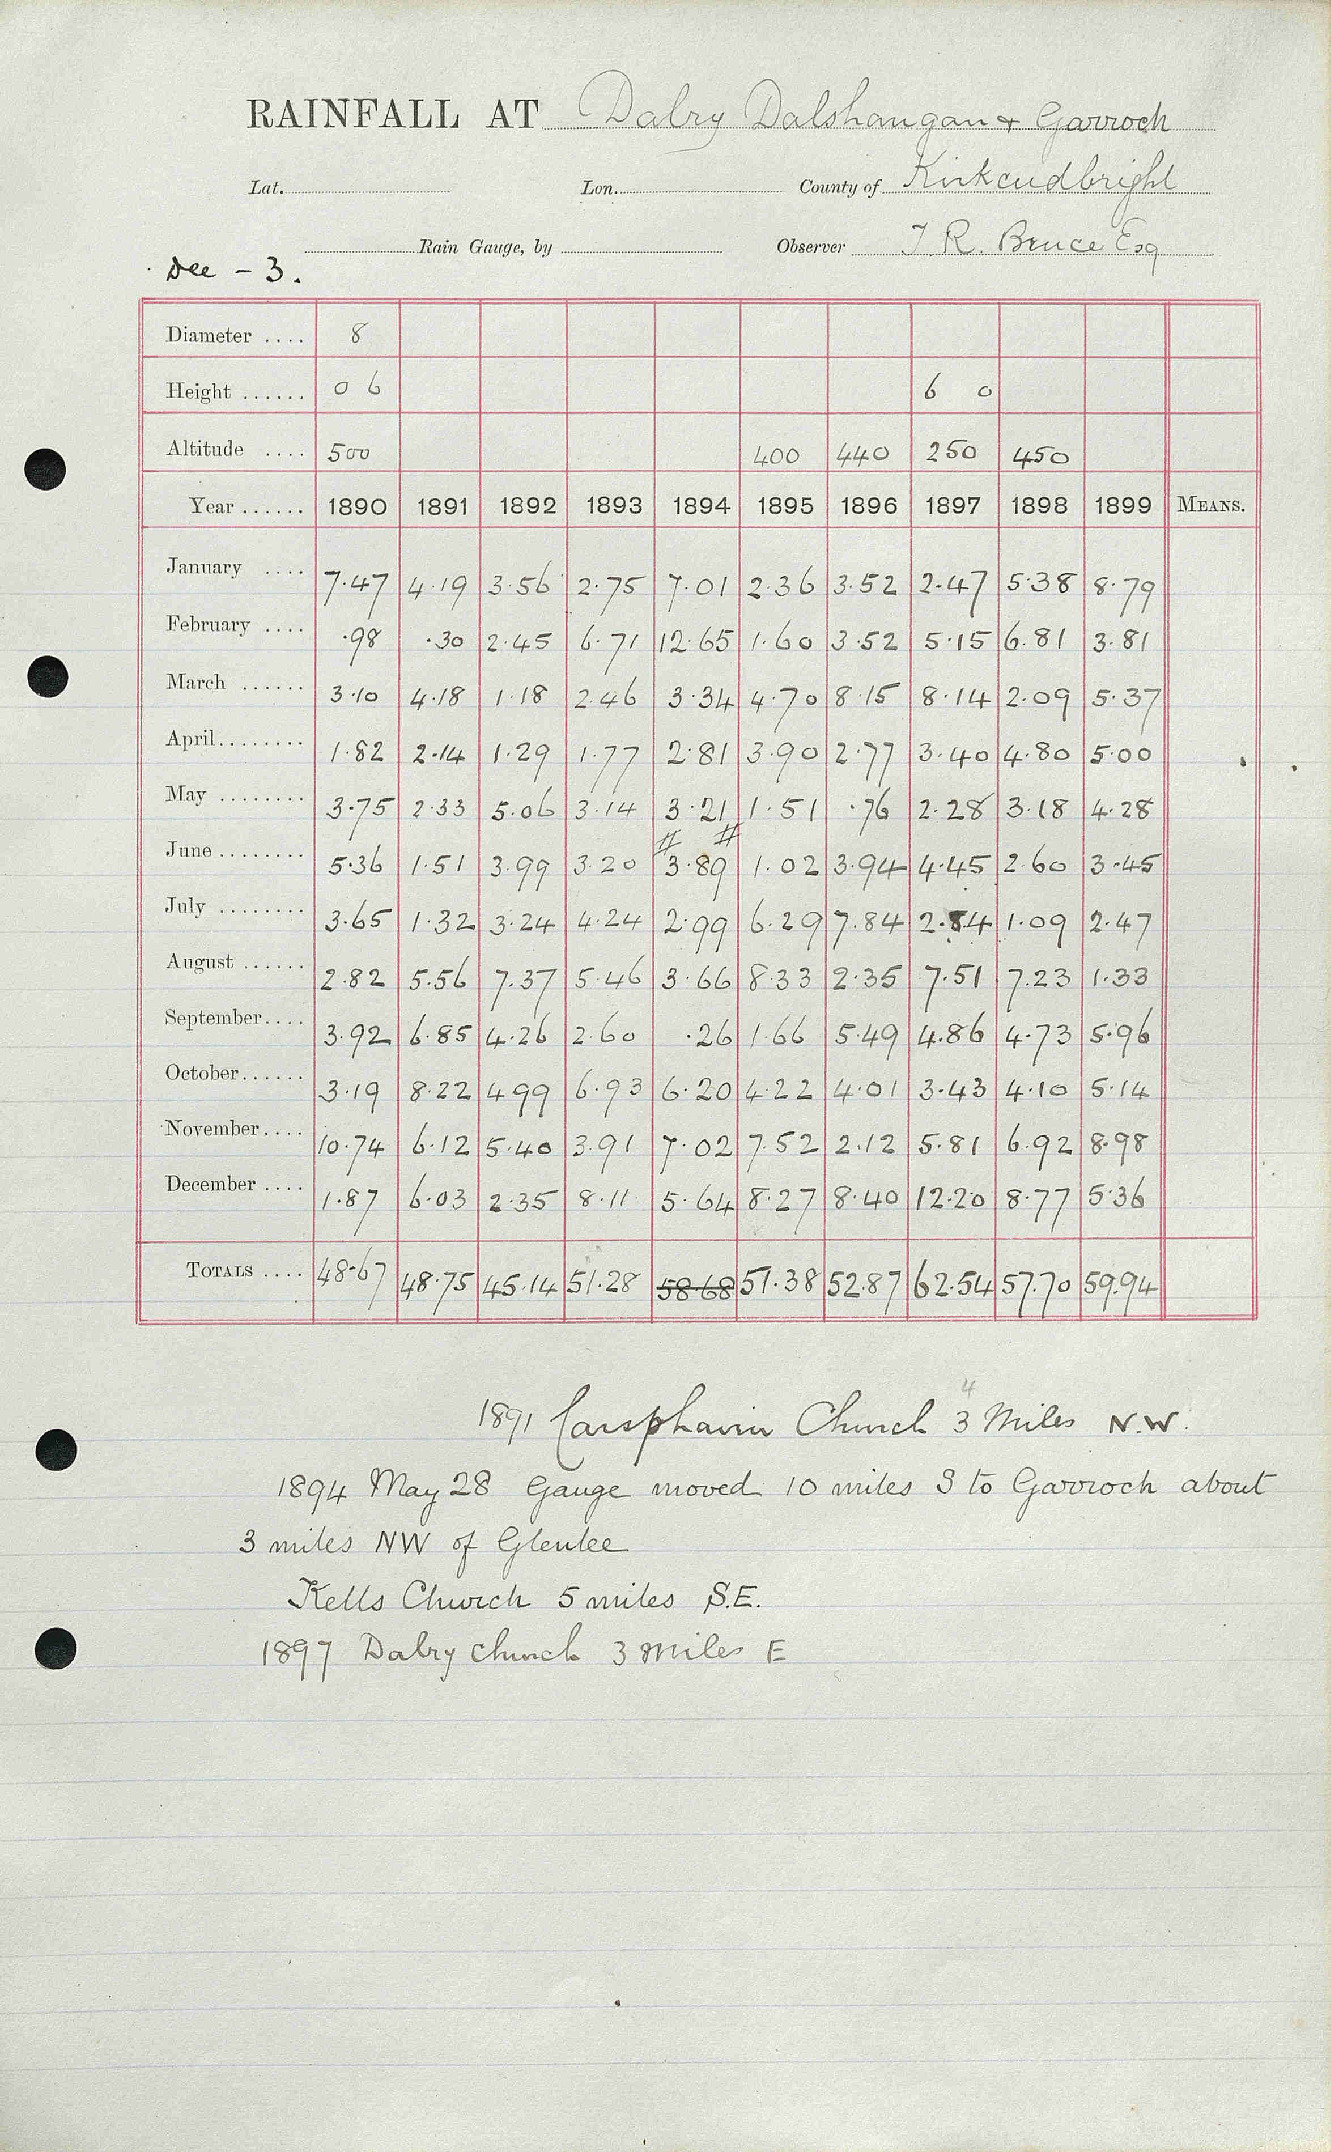 RAINFALL AT Dalry Dalshangan & Garroch
Lat. Lon. County of Kirkcudbright
Rain Gauge, by Observer J. R. Bruce Esq
Dee - 3.
Diameter .... 8
Height ...... 0 6 6 0
Altitude .... 500 400 440 250 450
Year ...... 1890 1891 1892 1893 1894 1895 1896 1897 1898 1899 MEANS.
January .... 7.47 4.19 3.56 2.75 7.01 2.36 3.52 2.47 5.38 8.79
February .... .98 .30 2.45 6.71 12.65 1.60 3.52 5.15 6.81 3.81
March ...... 3.10 4.18 1.18 2.46 3.34 4.70 8.15 8.14 2.09 5.37
April........ 1.82 2.14 1.29 1.77 2.81 3.90 2.77 3.40 4.80 5.00
May ........ 3.75 2.33 5.06 3.14 3.21 1.51 .76 2.28 3.18 4.28
# #
June ........ 5.36 1.51 3.99 3.20 3.89 1.02 3.94 4.45 2.60 3.45
July ........ 3.65 1.32 3.24 4.24 2.99 6.29 7.84 2.84 1.09 2.47
August ...... 2.82 5.56 7.37 5.46 3.66 8.33 2.35 7.51 7.23 1.33
September.... 3.92 6.85 4.26 2.60 .26 1.66 5.49 4.86 4.73 5.96
October...... 3.19 8.22 4.99 6.93 6.20 4.22 4.01 3.43 4.10 5.14
November.... 10.74 6.12 5.40 3.91 7.02 7.52 2.12 5.81 6.92 8.98
December .... 1.87 6.03 2.35 8.11 5.64 8.27 8.40 12.20 8.77 5.36
TOTALS .... 48.67 48.75 45.14 51.28 58.68 51.38 52.87 62.54 57.70 59.94
4
1891 Carsphairn Church 3 Miles N.W.
1894 May 28 Gauge moved 10 miles S to Garroch about
3 miles NW of Glenlee
Kells Church 5 miles S.E.
1897 Dalry Church 3 Miles E